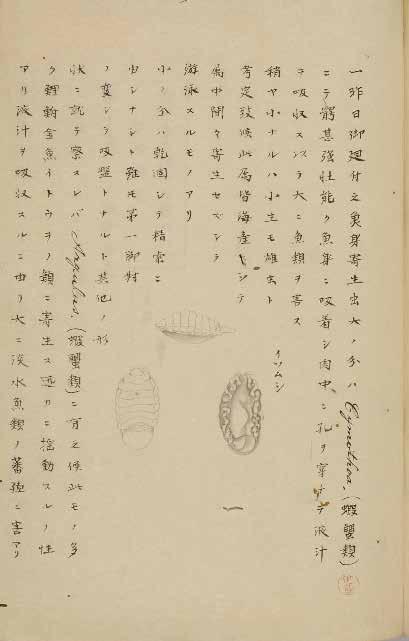 一昨日御廻付之魚身寄生虫大ノ分ハCymothoa.(蝦蟹類)
ニテ鬍甚強性能ク魚身ニ吸着シ肉中ニ孔ヲ穿チテ液汁
ヲ吸収スル大ニ魚類ヲ害ス
稍ヤ小ナルハ小生モ雄虫ト
考定致候此属皆海産ニシテ
属中間々寄生セズシテ
游泳スルモノアリ
小ノ分ハ乾固シテ精密ニ
シナシト雖モ第一脚対
ノ変シテ吸盤トナルト其他ノ形
状ニ就テ察スレバArgulus.(蝦蟹類)ニ有之候此モノ多
ク鯉鮒金魚イトウヲノ類ニ寄生ス迅カニ揺動スルノ性
アリ液汁ヲ吸収スルニ由リ大ニ淡水魚類ノ蕃殖ニ害アリ
イヲムシ